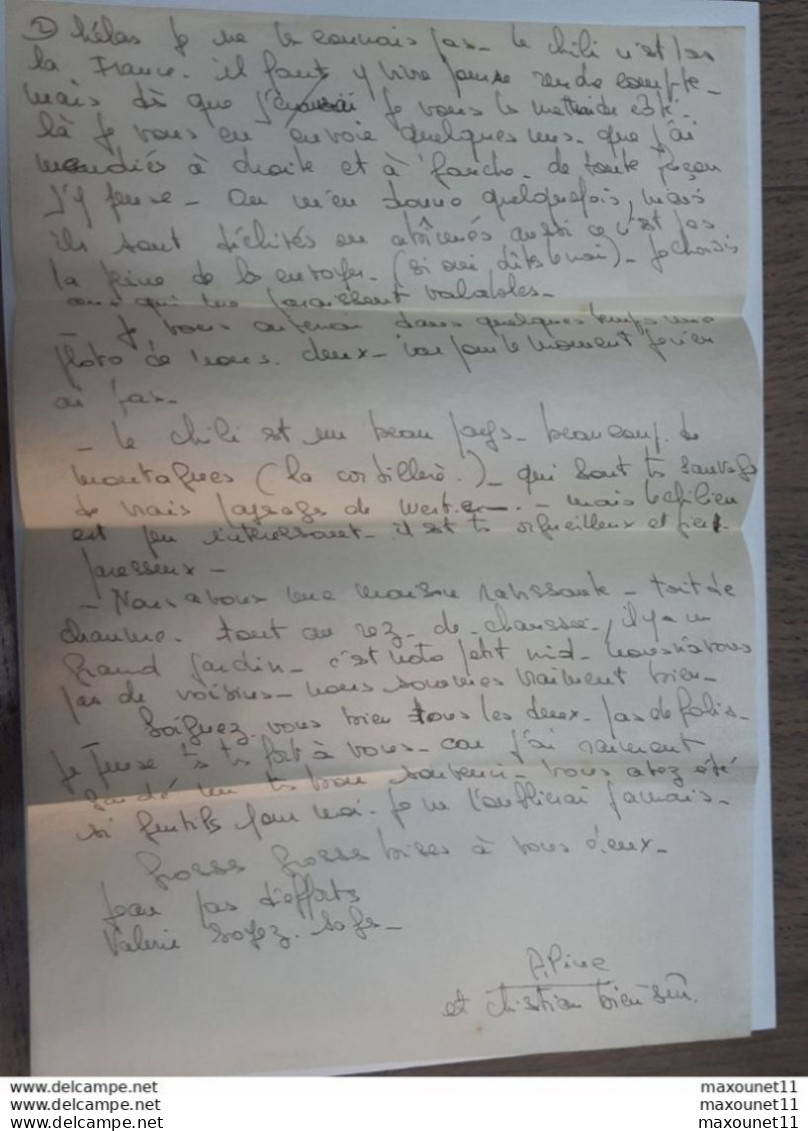 ② hélas je ne le connais pas - le chili n'est pas
la France. il faut y vivre pour se rendre compte -
mais dès que j'en je vous le mettrai de côté
là je vous en envoie quelques uns - que j'ai
mendiés à droite et à gauche - de toute façon
j'y pense - on m'en donne quelquefois, mais
ils sont déchirés ou abîmés aussi ce n'est pas
la peine de les envoyer - (si oui dites le moi) - je choisis
ceux qui me paraissent valables -
- je vous enverrai dans quelques temps une
photo de nous. deux - car pour le moment je n'en
ai pas -
- le chili est un beau pays - beaucoup de
montagnes (la cordillère.) - qui sont ts sauvages
de vrais paysages de western - mais le chilien
est peu intéressant - il est ts orgueilleux et
paresseux -
- Nous avons une maison ravissante - toit de
chaume. tout au rez - de - chaussée, il y a un
grand jardin - c'est notre petit nid - nous n'avons
pas de voisins - nous sommes vraiment bien -
Soignez vous bien tous les deux - pas de folies -
je pense ts ts fort à vous - car j'ai vraiment
gardé un ts bon souvenir - vous avez été
si gentils pour moi. je ne l'oublierai jamais -
grosses grosses bises à vous deux -
Jean pas d'efforts
Valerie soyez. sage -
et christian bien sûr.
www.delcampe.net
www.delcampe.net
www.delcampe.net
maxounet11
maxounet11
maxounet11